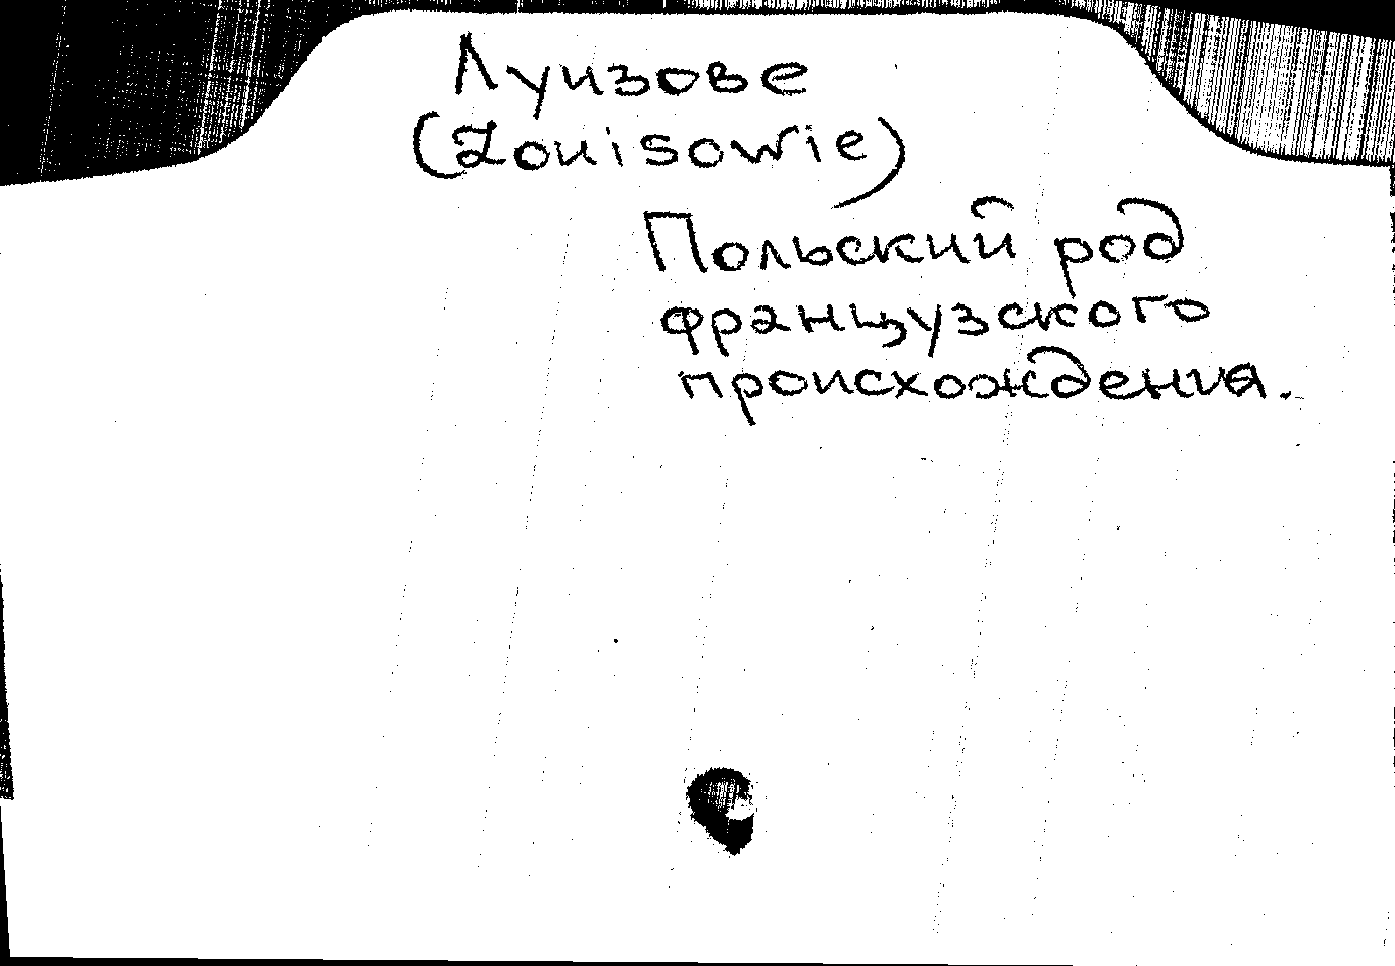 Луизове
(Louisowie)
Польский род
французского
происхождения.